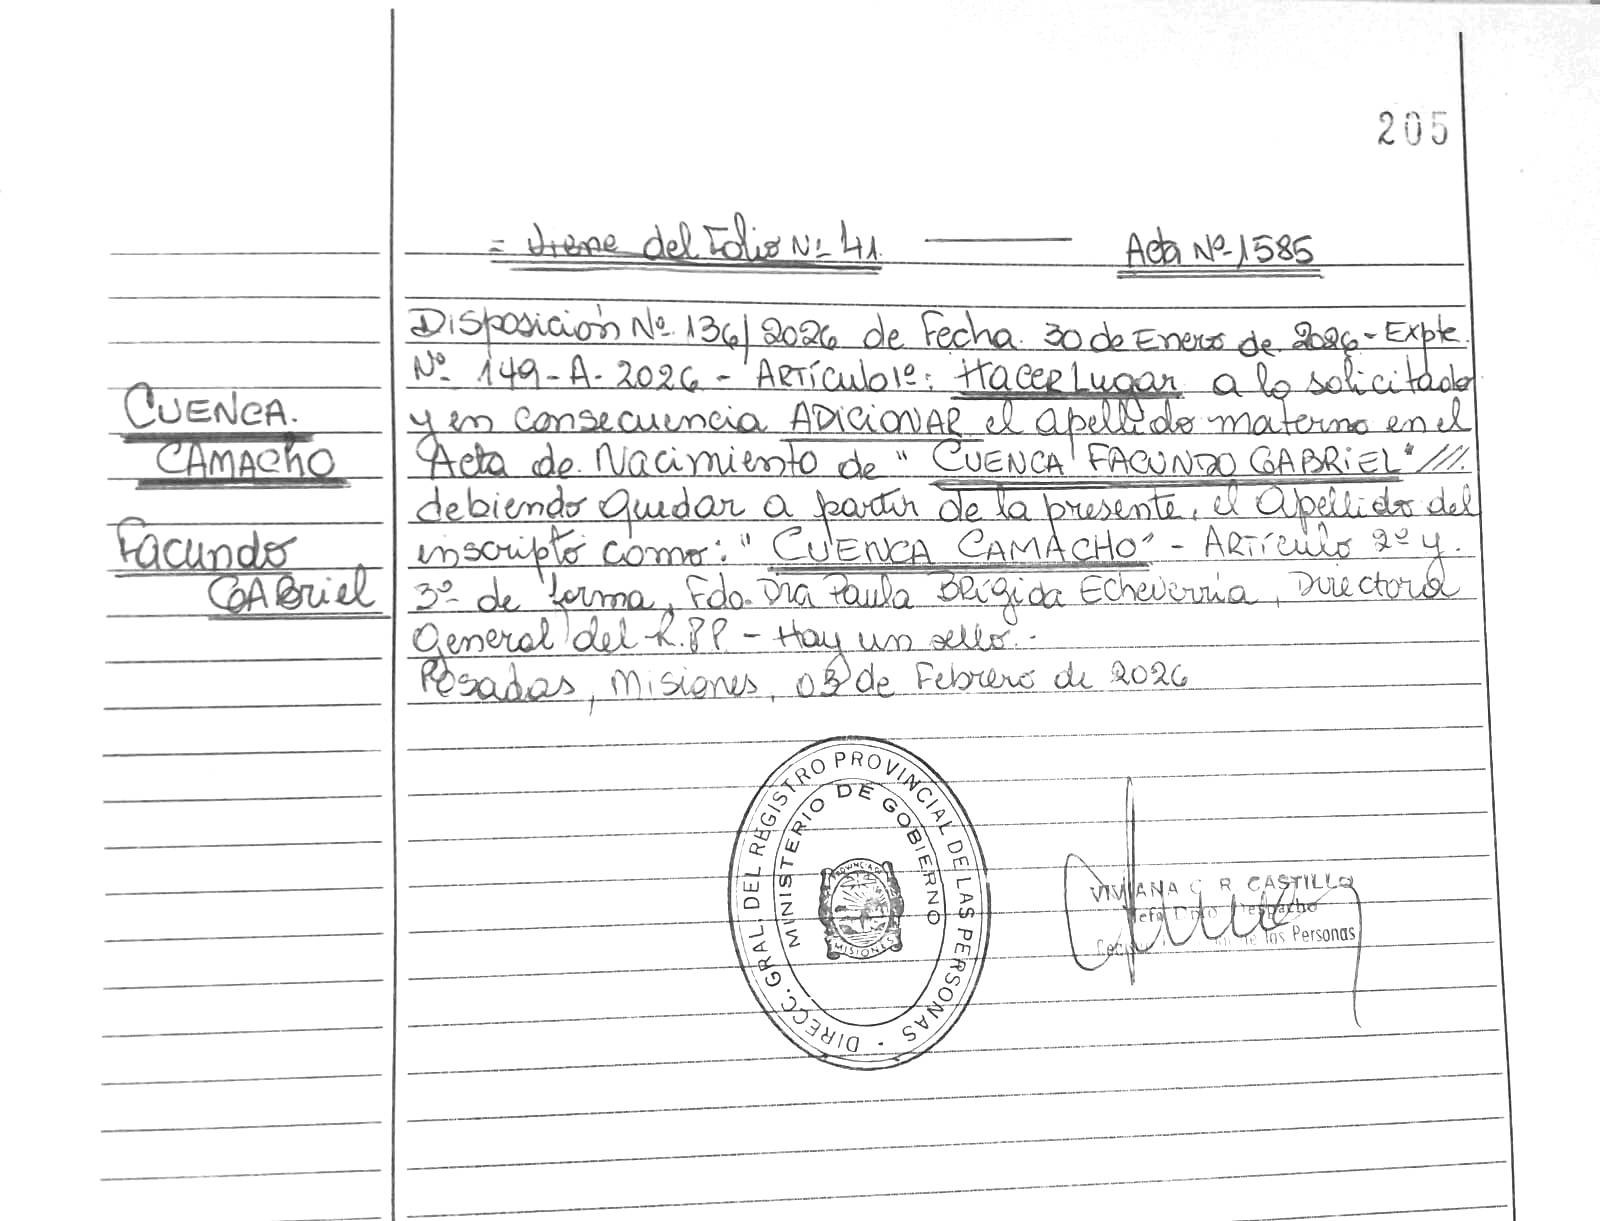 205
= Viene del Folio Nº 41. ——— Acta Nº 1585
CUENCA.
CAMACHO
Facundo
GABriel
Disposición Nº 136/2026 de Fecha 30 de Enero de 2026 - Expte.
Nº 149-A-2026 - Artículo 1º: HACER LUGAR a lo solicitado
y en consecuencia ADICIONAR el apellido materno en el
Acta de Nacimiento de "CUENCA FACUNDO GABRIEL" ///.
debiendo quedar a partir de la presente, el Apellido del
inscripto como: "CUENCA CAMACHO" - ARTículo 2º y
3º de forma, Fdo. Dra Paula Brígida Echeverria, Directora
General del R.P.P. - Hay un sello.-
Posadas, Misiones, 03 de Febrero de 2026
DIRECC. GRAL. DEL REGISTRO PROVINCIAL DE LAS PERSONAS ·
MINISTERIO DE GOBIERNO
PROVINCIA DE
MISIONES
VIVIANA C. R. CASTILLO
Jefa Dpto. Despacho
de las Personas